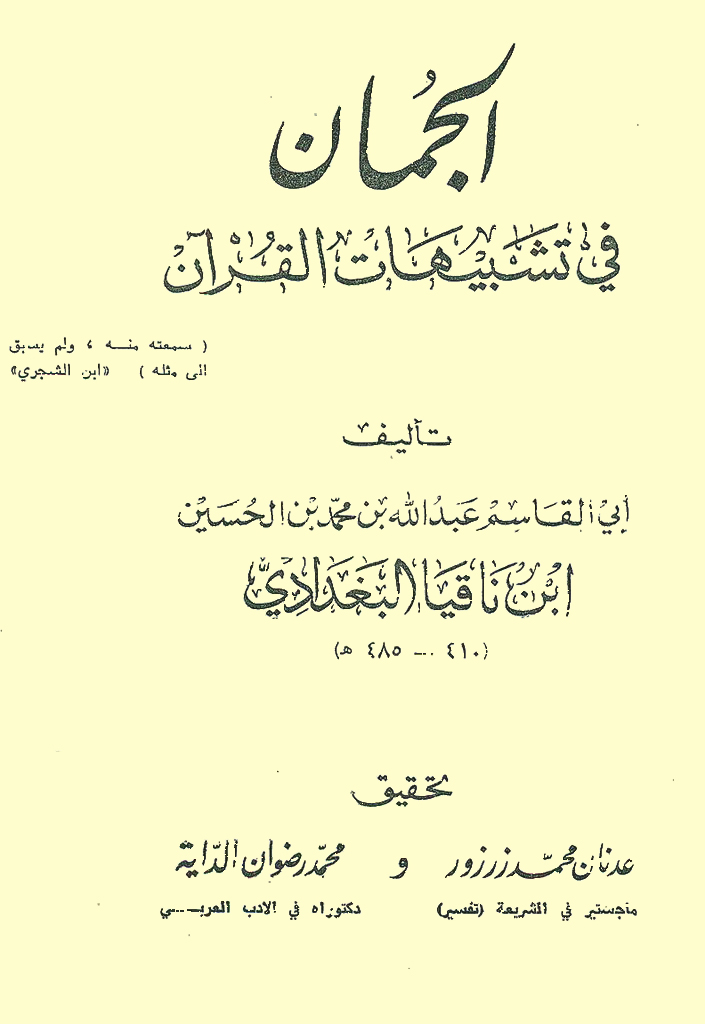 الجُمان
في تشَبيهَات القُرْآن
( سمعته منـــه ، ولم يسبق
الى مثله ) «ابن الشجري»
تأليف
أبي القَاسِم عَبدُ الله بن محمّد بن الحُسَين
ابْن نَاقيَا البَغدَاديّ
(٤١٠ ــ ٤٨٥ هـ)
تحقيق
عدنان محمّد زرزور و محمّد رضوان الدّاية
ماجستير في الشريعة (تفسير) دكتوراه في الادب العربـــي